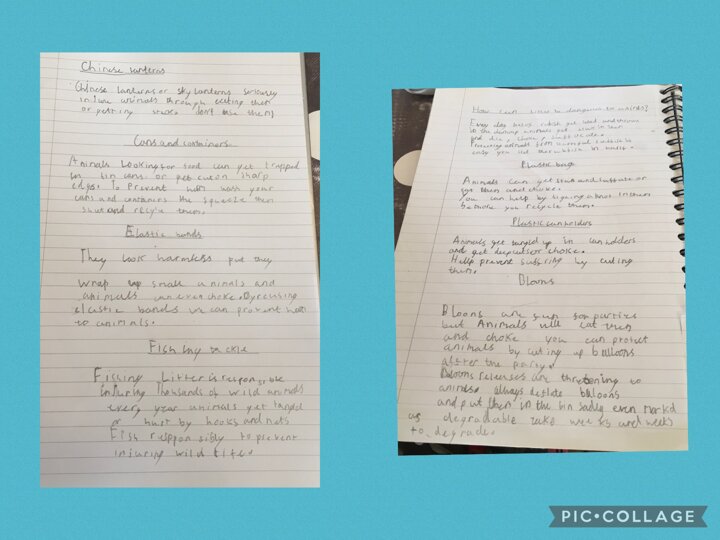 Chinese lanterns
Chinese lanterns or sky lanterns seriously
injure animals through eating them
or getting stuck. don't use them
Cans and containers
Animals looking for food can get trapped
in bin cans. or get cut on sharp
edges. To prevent wash your
cans and containers squeeze then
shut and recyle them.
Elastic bands
They look harmless put they
wrap up small animals and
animals can even choke. By reusing
elastic bands we can prevent
to animals.
Fishing tackle
Fishing Litter is responsible
injuring thousands of wild animals
every year animals get tangled
or hurt by hooks and nets
Fish responsibly to prevent
injuring wild life.
How can litter be dangerous to animals?
Every day
animals get
and die, choke, suffocate.
animals from harmful rubbish is
easy you put the rubbish in
Plastic bags
Animals can get stuck and suffocate or
eat them and choke.
You can help by tying a knot in them
before you recycle them.
Plastic can holders
Animals get tangled up in can holders
and get deep cuts or choke.
Help prevent suffring by cuting
them.
Bloons
Bloons are fun for parties
but Animals will eat them
and choke you can protect
animals by cuting up bulloons
after the party.
Bloons releases are threatening to
animals always deflate bloons
and put them in the bin sadly even markd
as degradable take weeks and weeks
to degrade.
PIC•COLLAGE